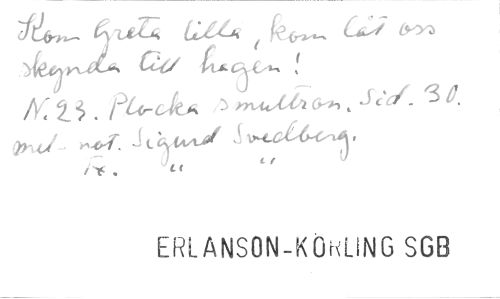 Kom Greta lilla, kom låt oss
skynda till hagen!
N. 23. Plocka smultron. Sid. 30.
mel. not. Sigurd Svedberg.
Tx. " "
ERLANSON-KÖRLING SGB